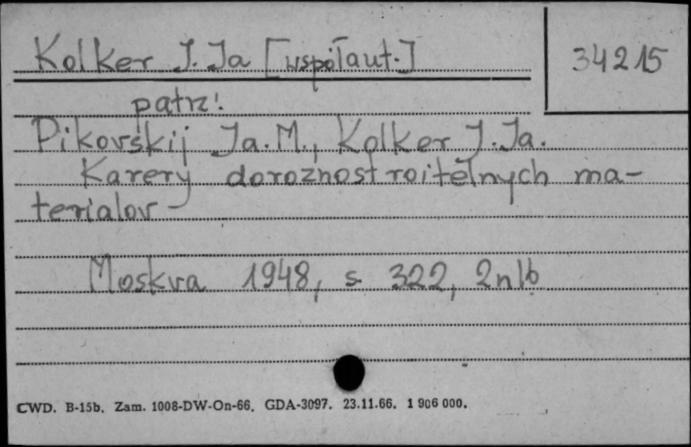 Kolker J. Ja [współaut.]
34215
patrz:
Pikovśkij Ja. M., Kolker J. Ja.
Karery dorožnostroitelnych ma-
terialov
Moskva 1948, s. 322, 2nlb
CWD. B-15b. Zam. 1008-DW-On-66. GDA-3097. 23.11.66. 1 906 000.